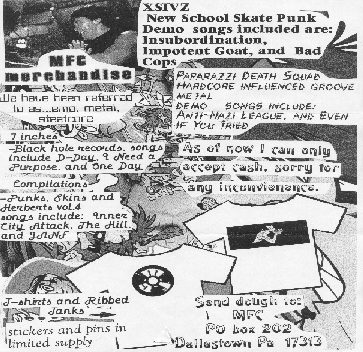 XSIVZ
New School Skate Punk
Demo songs included are:
Insubordination,
Impotent Goat, and Bad
Cops
MFC
merchandise
We have been referred
to as...anti metal,
steelcore
Paparazzi Death Squad
Hardcore influenced groove
metal
demo songs include:
Anti-Nazi League, and Even
if you tried
7 inches
-Black hole records, songs
include D-Day, I Need a
Purpose, and One Day
As of now I can only
accept cash, sorry for
any inconvienance.
Compilations
-Punks, Skins and
Herberts vol.4
songs include: Inner
City Attack, The Hill,
and
T-shirts and Ribbed
Tanks
stickers and pins in
limited supply
Send dough to:
MFC
PO box 202
Dallastown Pa 17313